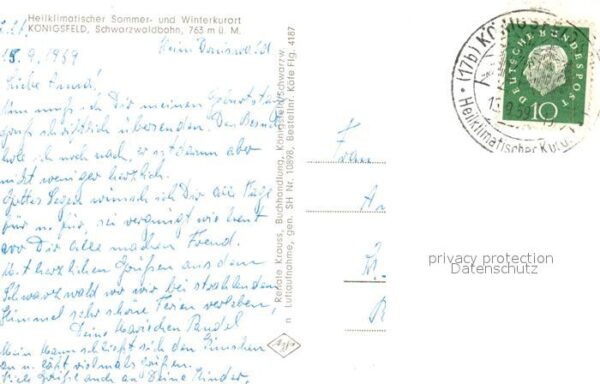 Heilklimatischer Sommer- und Winterkurort
KÖNIGSFELD, Schwarzwaldbahn, 763 m ü. M.
15.9.1959
Liebe
Nun muß ich Dir meinen Geburtstags
gruß schriftlich übersenden. Den Besuch
hole ich noch nach, er ist darum aber
nicht weniger herzlich.
Gottes Segen wünsch ich Dir alle Tage
für u. für, sei vergnügt wie heut
vor Dir alle machen Freud.
Mit herzlichen Grüßen aus dem
Schwarzwald wo wir bei strahlendem
Himmel sehr schöne Ferien verleben,
Deine
Mein Mann schließt sich den Wünschen
an u. läßt vielmals grüßen.
Viele Grüße auch an Deine Kinder.
Renate Krauss, Buchhandlung, Königsfeld/Schwarzw.
n Luftaufnahme, gen. SH Nr. 10898, Bestellnr. Käte Flg. 4187
Frau
An
(17b) KÖNIGSFE
15.9.59
Heilklimatischer Kuro
DEUTSCHE BUNDESPOST
10
privacy protection
Datenschutz